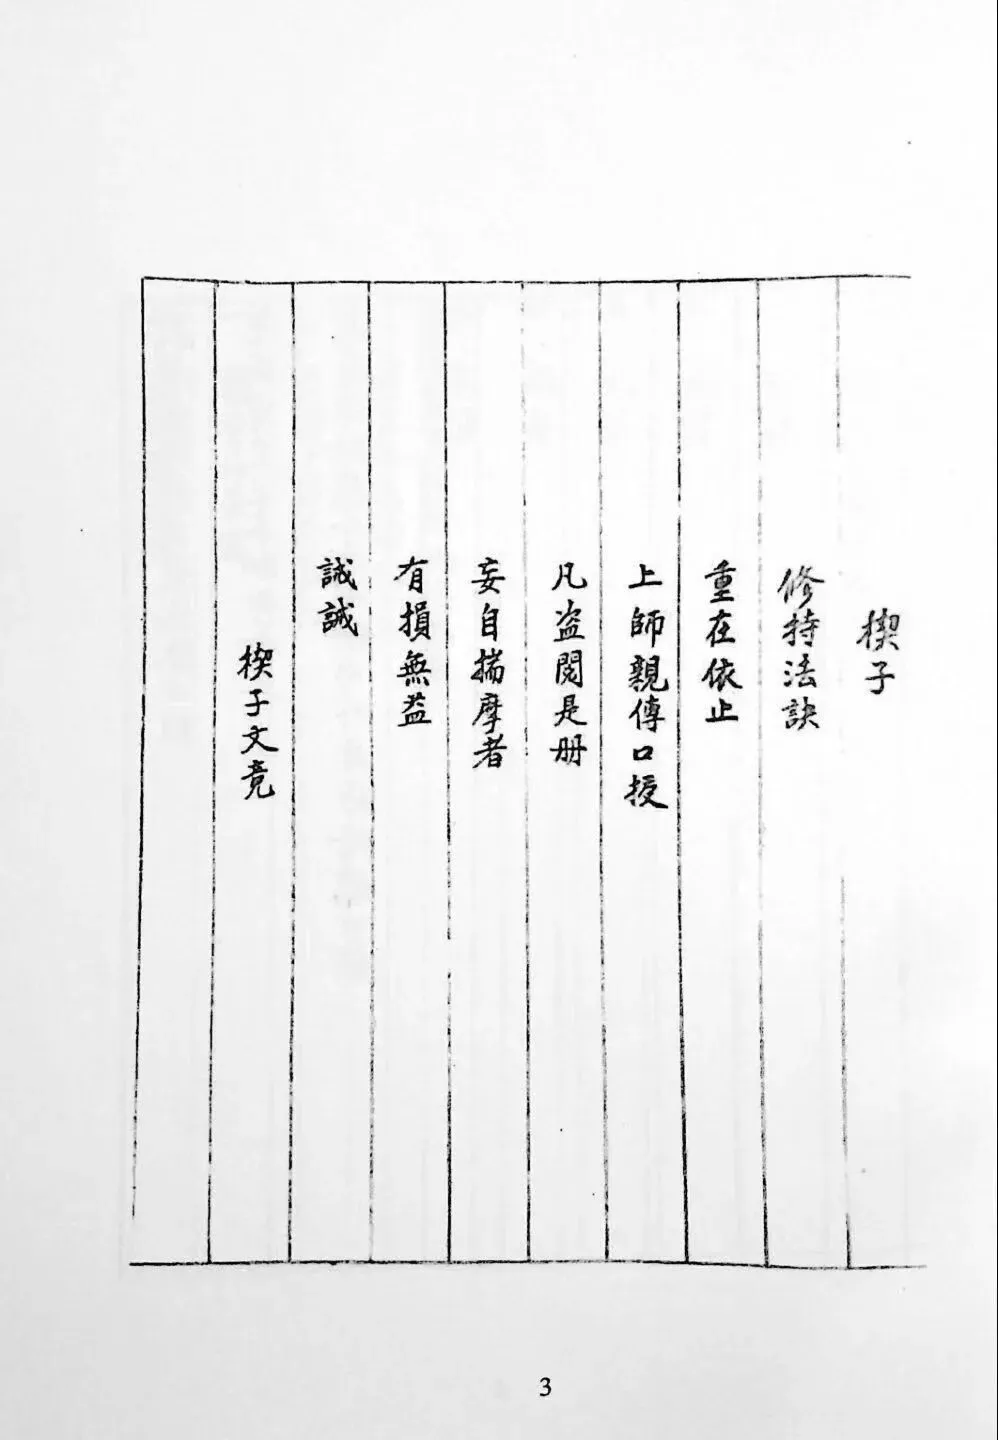 楔子
修持法訣
重在依止
上師親傳口授
凡盗閱是册
妄自揣摩者
有損無益
誡誡
楔子文竟
3